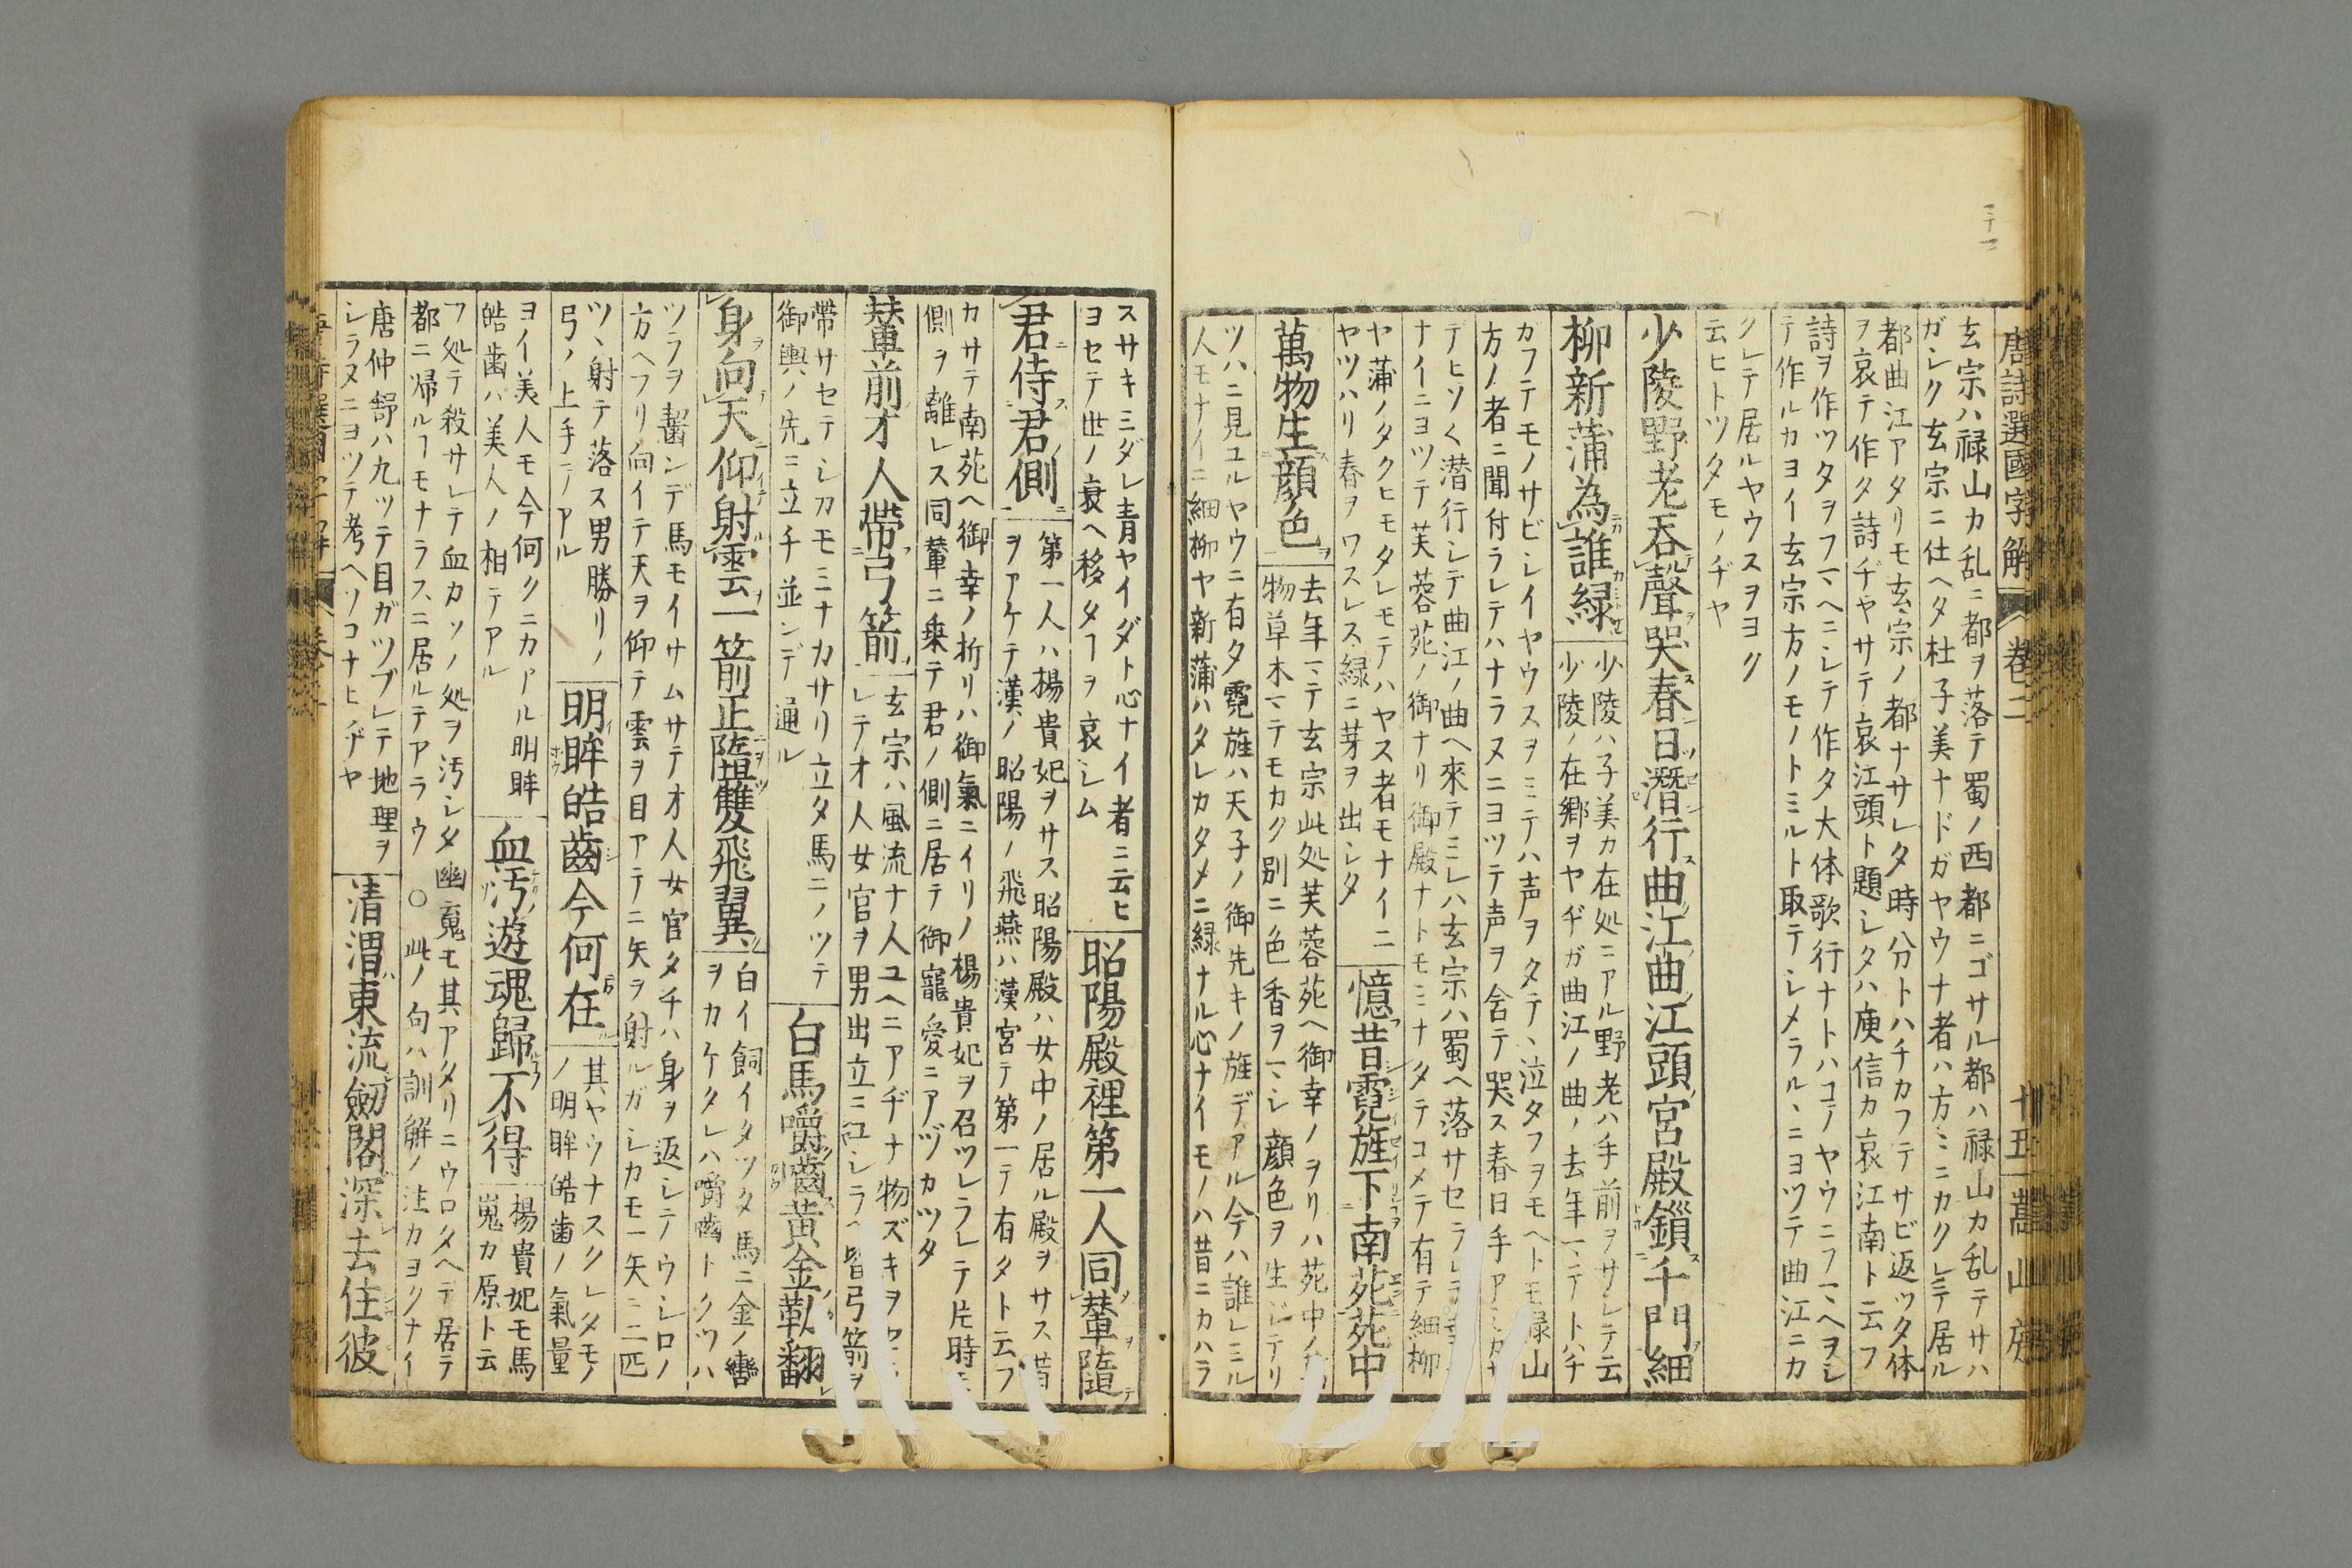 唐詩選國字解 巻二 十五 嵩山
玄宗ハ禄山カ乱ニ都ヲ落テ蜀ノ西都ニゴサル都ハ禄山カ乱テサハ
ガシク玄宗ニ仕ヘタ杜子美ナドガヤウナ者ハ方〻ニカクレテ居ル
都曲江アタリモ玄宗ノ都ナサレタ時分トハチカフテサビ返ツタ体
ヲ哀テ作タ詩ヂヤサテ哀江頭ト題シタハ庾信カ哀江南ト云フ
詩ヲ作ツタヲフマヘニシテ作タ大体歌行ナトハコノヤウニフマヘヲシ
テ作ルカヨイ玄宗方ノモノトミルト取テシメラルヽニヨツテ曲江ニカ
クレテ居ルヤウスヲヨク
云ヒトツタモノヂヤ
少陵野老呑聲哭春日潛行曲江曲江頭宮殿鎖千門細
柳新蒲為誰緑
少陵ハ子美カ在処ニアル野老ハ手前ヲサシテ云
少陵ノ在郷ヲヤヂガ曲江ノ曲ノ去年マテトハチ
ガフテモノサビシイヤウスヲミテハ声ヲタテヽ泣タフヲモヘトモ禄山
方ノ者ニ聞付ラレテハナラヌニヨツテ声ヲ舍テ哭ス春日手
テヒソく潜行シテ曲江ノ曲ヘ來テミレハ玄宗ハ蜀ヘ落サセラレ
ナイニヨツテ芙蓉苑ノ御ナリ御殿ナトモミナタテコメテ有テ細柳
ヤ蒲ノタクヒモタレモテハヤス者モナイニ
ヤツハリ春ヲワスレス緑ニ芽ヲ出シタ
憶昔霓旌下南苑苑中
萬物生顔色
去年マテ玄宗此処芙蓉苑ヘ御幸ノヲリハ苑中ノ
物草木マテモカク別ニ色香ヲマシ顔色ヲ生シテリ
ツハニ見ユルヤウニ有タ霓旌ハ天子ノ御先キノ旌デアル今ハ誰レミル
人モナイニ細柳ヤ新蒲ハタレカタメニ緑ナル心ナイモノハ昔ニカハラ
スサキミダレ青ヤイダト心ナイ者ニ云ヒ
ヨセテ世ノ衰ヘ移タヿヲ哀シム
昭陽殿裡第一人同輦隨
君侍君側
第一人ハ楊貴妃ヲサス昭陽殿ハ女中ノ居ル殿ヲサス昔
ヲアケテ漢ノ昭陽ノ飛燕ハ漢宮テ第一テ有タト云フ
カサテ南苑ヘ御幸ノ折リハ御氣ニイリノ楊貴妃ヲ召ツレラレテ片時モ
側ヲ離レス同輦ニ乗テ君ノ側ニ居テ御寵愛ニアヅカツタ
輦前才人帶弓箭
玄宗ハ風流ナ人ユヘニアヂナ物ズキヲ
レテオ人女官ヲ男出立ニコシラヘ皆弓箭ヲ
帶サセテシカモミナカサリ立タ馬ニノツテ
御輿ノ先ニ立チ並ンデ通ル
白馬嚼齧黃金勒翻
身向天仰射雲一箭正墜雙飛翼
白イ飼イタツタ馬ニ金ノ轡
ヲカケタレハ嚼齧トクツハ
ツラヲ齧ンデ馬モイサムサテオ人女官タチハ身ヲ返シテウシロノ
方ヘフリ向イテ天ヲ仰テ雲ヲ目アテニ矢ヲ射ルガシカモ一矢ニ二匹
ツヽ射テ落ス男勝リノ
弓ノ上手テアル
明眸皓齒今何在
其ヤウナスクレタモノ
ノ明眸皓歯ノ氣量
ヨイ美人モ今何クニカアル明眸
皓歯ハ美人ノ相テアル
血汚遊魂歸不得
楊貴妃モ馬
嵬カ原ト云
フ処テ殺サレテ血カソノ処ヲ汚シタ幽䰟モ其アタリニウロタヘテ居テ
都ニ帰ルヿモナラスニ居ルテアラウ ○此ノ句ハ訓解ノ注カヨクナイ
唐仲舒ハ九ツテ目ガツブレテ地理ヲ
シラヌニヨツテ考ヘソコナヒヂヤ
清渭東流劒閣深去住彼